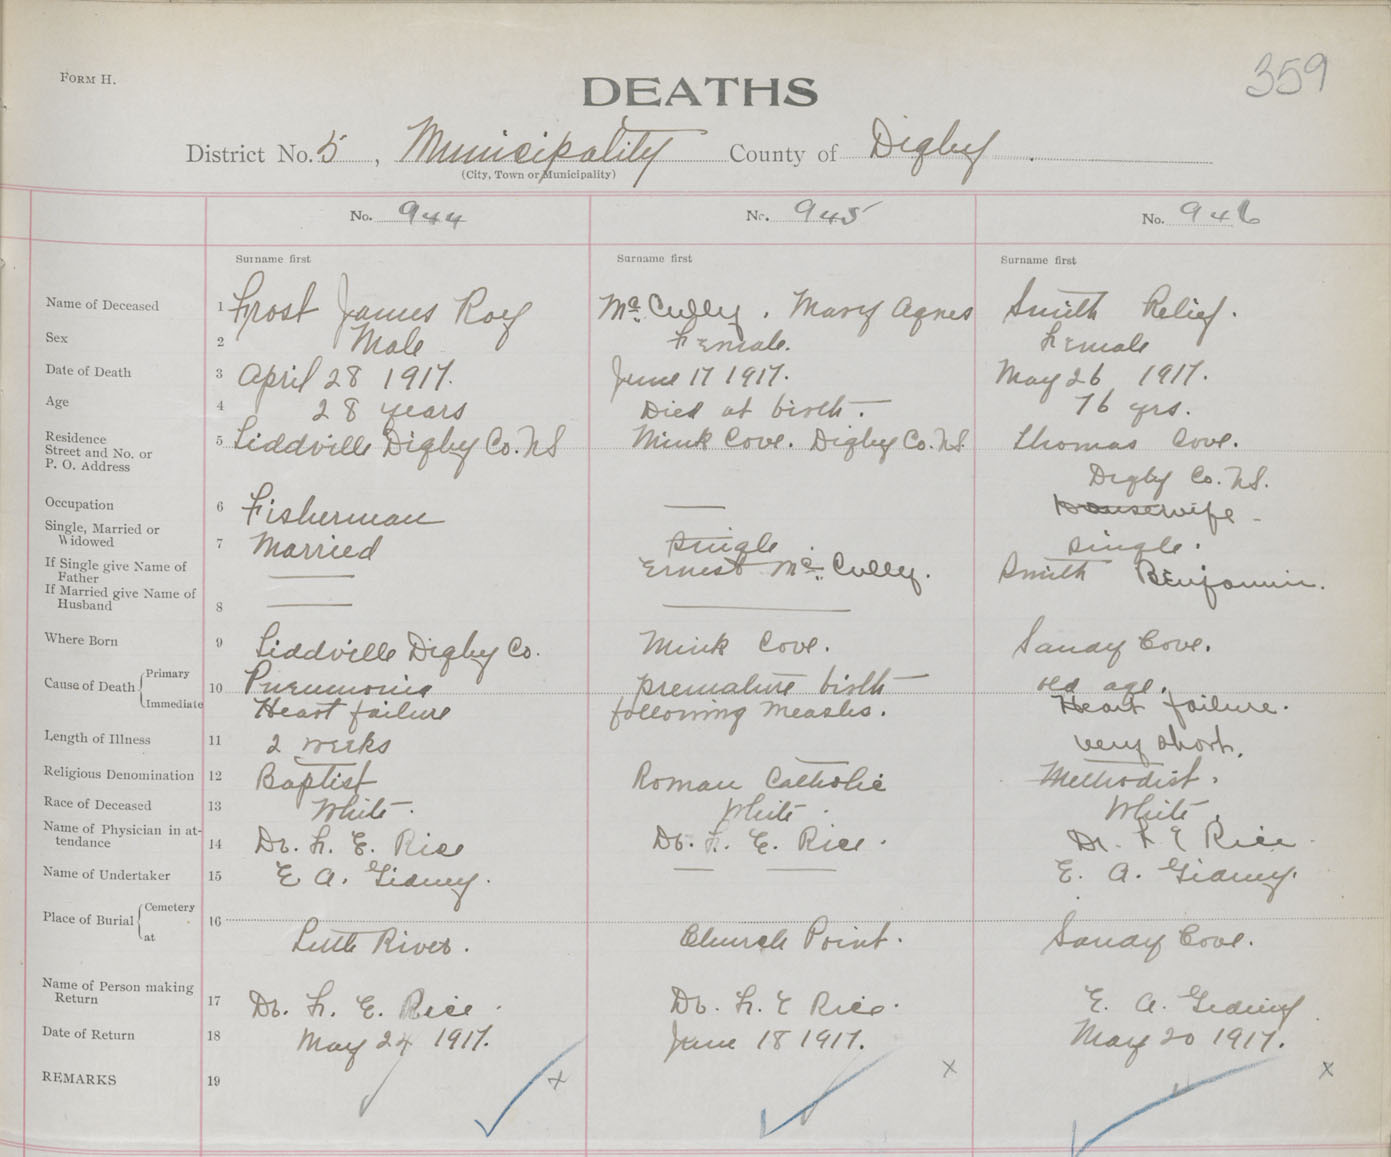 359
FORM H.
DEATHS
District No. 5, Municipality County of Digby
(City, Town or Municipality)
No. 944 No. 945 No. 946
Surname first Surname first Surname first
Name of Deceased 1 Frost James Roy McCully. Mary Agnes Smith Relief.
Sex 2 Male Female. Female
Date of Death 3 April 28 1917. June 17 1917. May 26 1917.
Age 4 28 years Died at birth. 76 yrs.
Residence Street and No. or P. O. Address 5 Tiddville Digby Co. NS Mink Cove. Digby Co. NS Thomas Cove.
Digby Co. NS.
Occupation 6 Fisherman — housewife -
Single, Married or Widowed 7 Married single. single.
If Single give Name of Father — Ernest McCully. Smith Benjamin.
If Married give Name of Husband 8 — —
Where Born 9 Tiddville Digby Co. Mink Cove. Sandy Cove.
Cause of Death Primary 10 Pneumonia premature birth old age.
Immediate Heart failure following Measles. Heart failure.
Length of Illness 11 2 weeks very short.
Religious Denomination 12 Baptist Roman Catholic Methodist.
Race of Deceased 13 White. White. White.
Name of Physician in attendance 14 Dr. F. E. Rice Dr. F. E. Rice. Dr. F E Rice.
Name of Undertaker 15 E A. Gidney. — — E. A. Gidney.
Place of Burial Cemetery 16
at Little River. Church Point. Sandy Cove.
Name of Person making Return 17 Dr. F. E. Rice. Dr. F. E Rice. E. A. Gidney
Date of Return 18 May 24 1917. June 18 1917. May 20 1917.
REMARKS 19 x x x